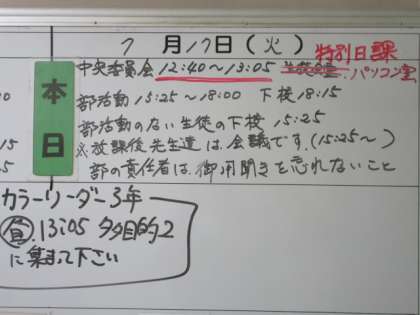 7 月17日(火) 特別日課
本日
中央委員会 12:40〜13:05 生徒会室.パソコン室
部活動 15:25〜18:00 下校 18:15
部活動のない生徒の下校 15:25
※放課後先生達は会議です。(15:25〜)
部の責任者は、御用聞きを忘れないこと
カラーリーダー3年
昼 13:05 多目的2
に集まって下さい